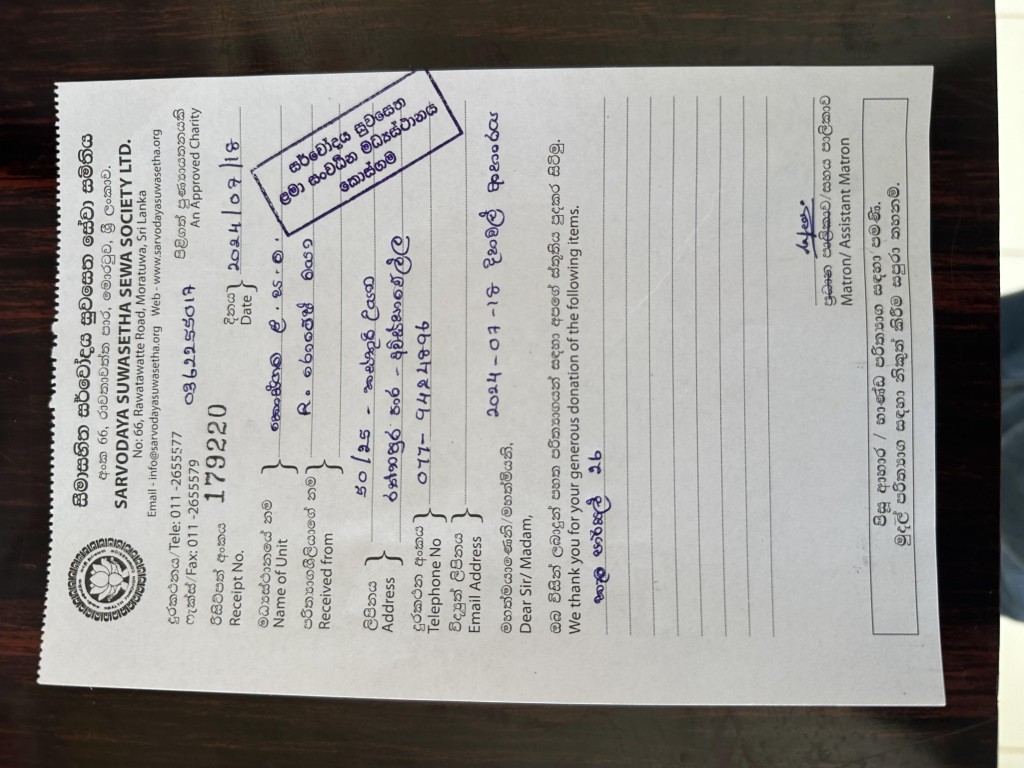 සීමාසහිත සර්වෝදය සුවසෙත සේවා සමිතිය
අංක 66, රාවතාවත්ත පාර, මොරටුව, ශ්‍රී ලංකාව.
SARVODAYA SUWASETHA SEWA SOCIETY LTD.
No: 66, Rawatawatte Road, Moratuwa, Sri Lanka
Email - info@sarvodayasuwasetha.org Web - www.sarvodayasuwasetha.org
දුරකථනය/Tele: 011 -2655577 0362255017 පිළිගත් පුණ්‍යායතනයකි
ෆැක්ස්/Fax: 011 -2655579 An Approved Charity
රිසිට්පත් අංකය 179220 දිනය 2024/07/18
Receipt No. Date
මධ්‍යස්ථානයේ නම
Name of Unit
සර්වෝදය සුවසෙත
ළමා සංවර්ධන මධ්‍යස්ථානය
කොස්ගම
පරිත්‍යාගශීලියාගේ නම R.
Received from
ලිපිනය 50/25 -
Address රත්නපුර පාර - අවිස්සාවේල්ල
දුරකථන අංකය 077- 9424896
Telephone No
විද්‍යුත් ලිපිනය
Email Address
මහත්මයාණෙනි/මහත්මියනි, 2024-07-18
Dear Sir/ Madam,
ඔබ විසින් ලබාදුන් පහත පරිත්‍යාගයන් සඳහා අපගේ ස්තුතිය පුදකර සිටිමු.
We thank you for your generous donation of the following items.
පාර්සල් 26
ප්‍රධාන පාලිකාව/සහාය පාලිකාව
Matron/ Assistant Matron
පිසූ ආහාර / භාණ්ඩ පරිත්‍යාග සඳහා පමණි.
මුදල් පරිත්‍යාග සඳහා නිකුත් කිරීම සපුරා තහනම්.